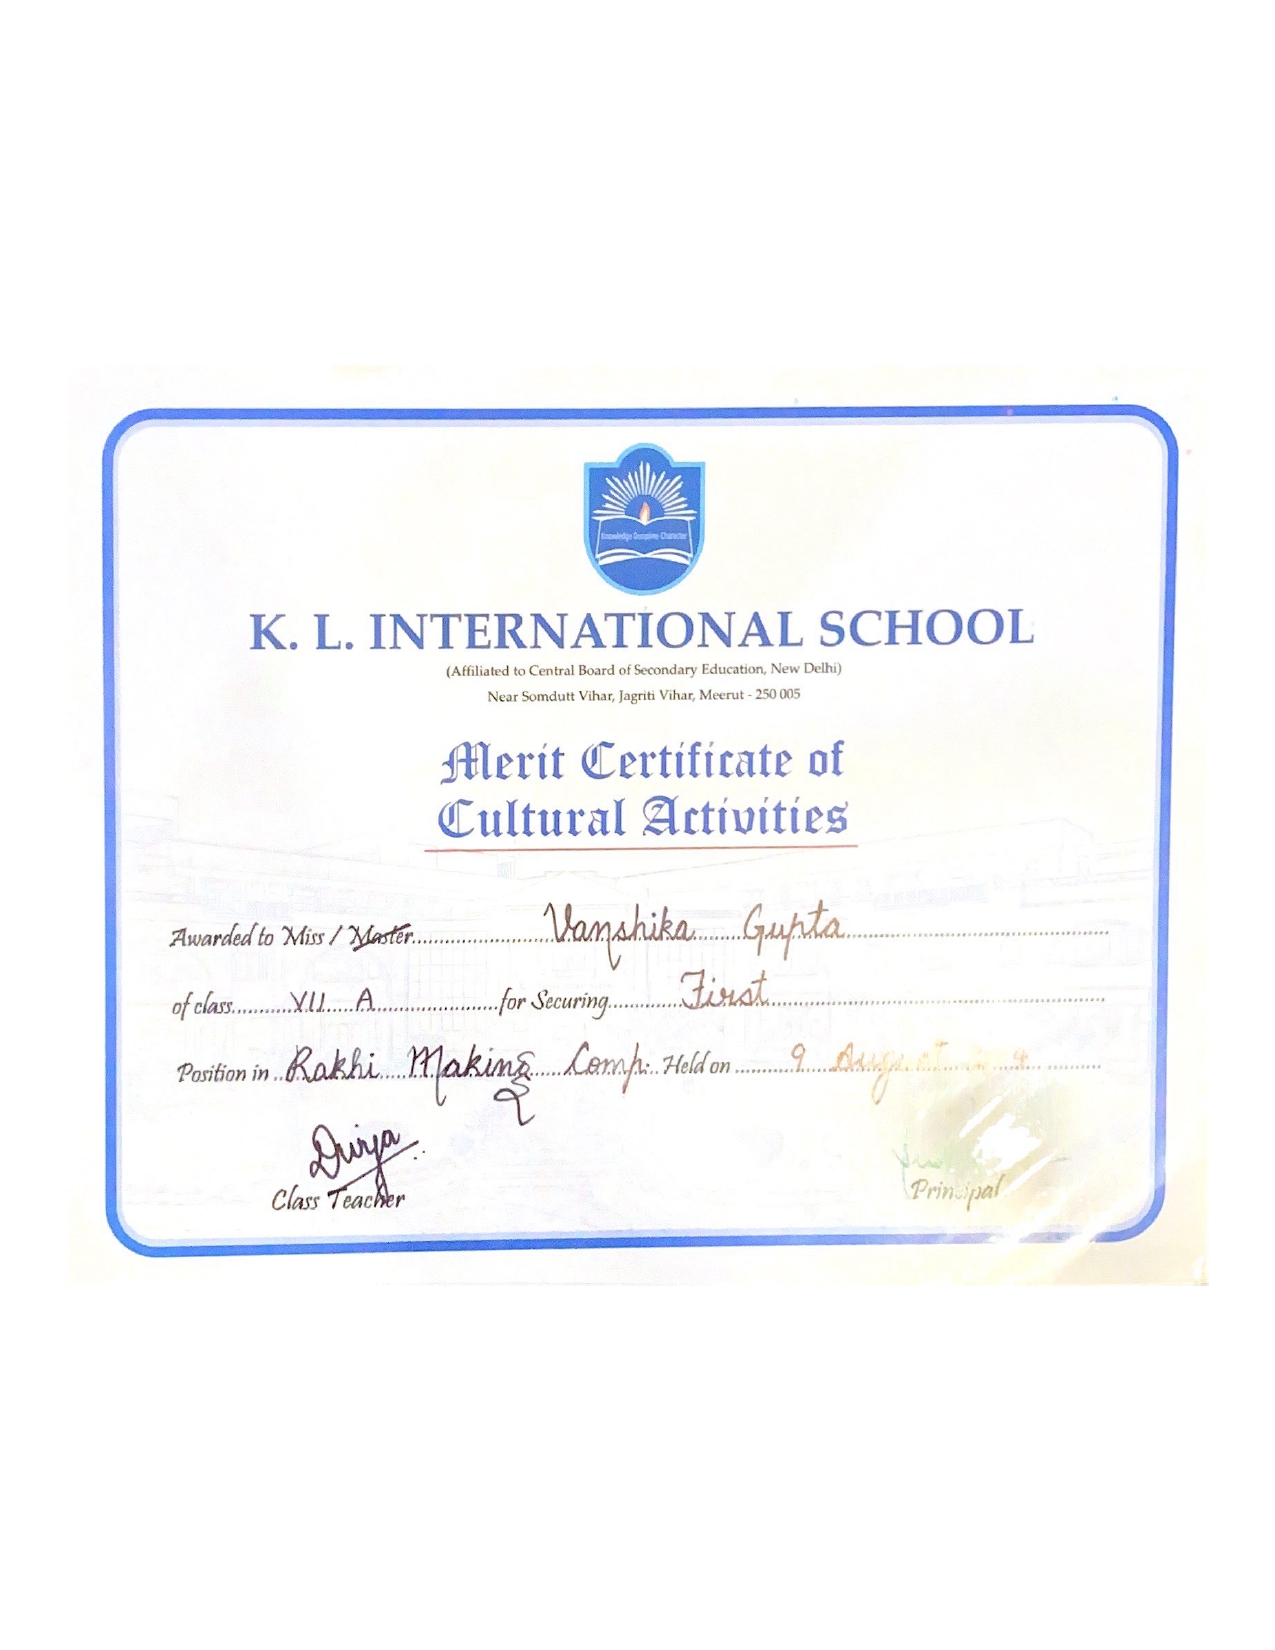 Knowledge Discipline Character
K. L. INTERNATIONAL SCHOOL
(Affiliated to Central Board of Secondary Education, New Delhi)
Near Somdutt Vihar, Jagriti Vihar, Meerut - 250 005
Merit Certificate of
Cultural Activities
Awarded to Miss / Master Vanshika Gupta
of class VII A for Securing First
Position in Rakhi Making Comp. Held on 9 August
Class Teacher
Principal